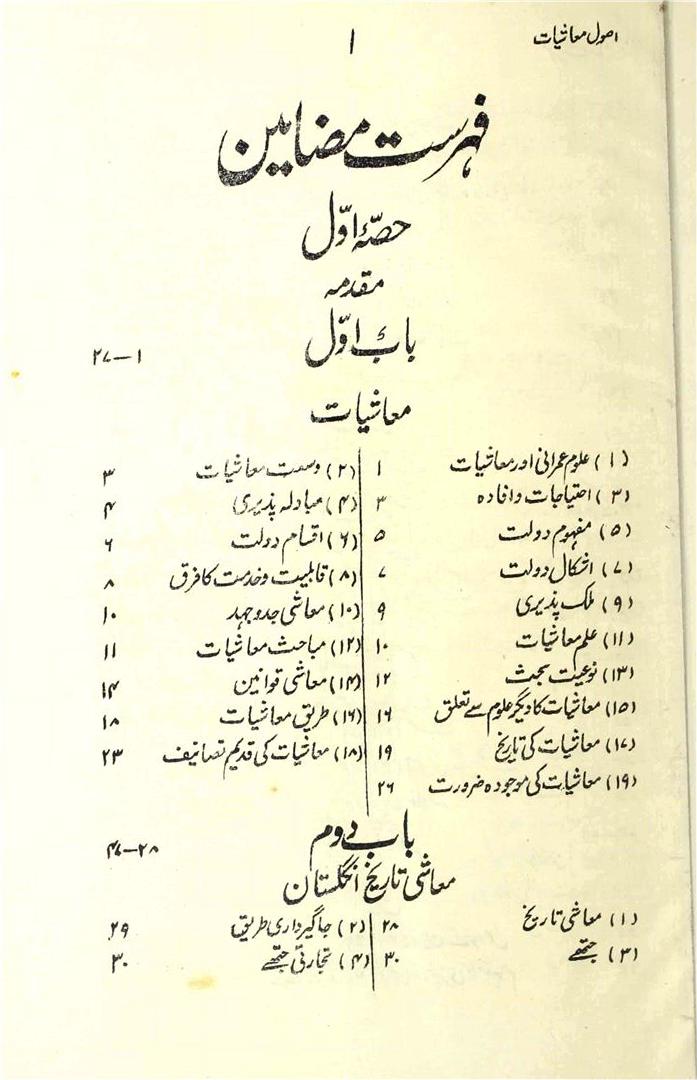 اصول معاشیات
۱
فہرست مضامین
حصۂ اوّل
مقدمہ
باب اوّل
۱—۲۷
معاشیات
(۱) علوم عمرانی اور معاشیات ۱ (۲) وسعت معاشیات ۳
(۳) احتیاجات و افادہ ۳ (۴) مبادلہ پذیری ۴
(۵) مفہوم دولت ۵ (۶) اقسام دولت ۶
(۷) اشکال دولت ۷ (۸) قابلیت و خدمت کا فرق ۸
(۹) ملک پذیری ۹ (۱۰) معاشی جدوجہد ۱۰
(۱۱) علم معاشیات ۱۰ (۱۲) مباحث معاشیات ۱۱
(۱۳) نوعیت بحث ۱۲ (۱۴) معاشی قوانین ۱۴
(۱۵) معاشیات کا دیگر علوم سے تعلق ۱۶ (۱۶) طریق معاشیات ۱۸
(۱۷) معاشیات کی تاریخ ۱۹ (۱۸) معاشیات کی قدیم تصانیف ۲۳
(۱۹) معاشیات کی موجودہ ضرورت ۲۶
باب دوم
۲۸—۴۷
معاشی تاریخ انگلستان
(۱) معاشی تاریخ ۲۸ (۲) جاگیرداری طریق ۲۹
(۳) جتھے ۳۰ (۴) تجارتی جتھے ۳۰